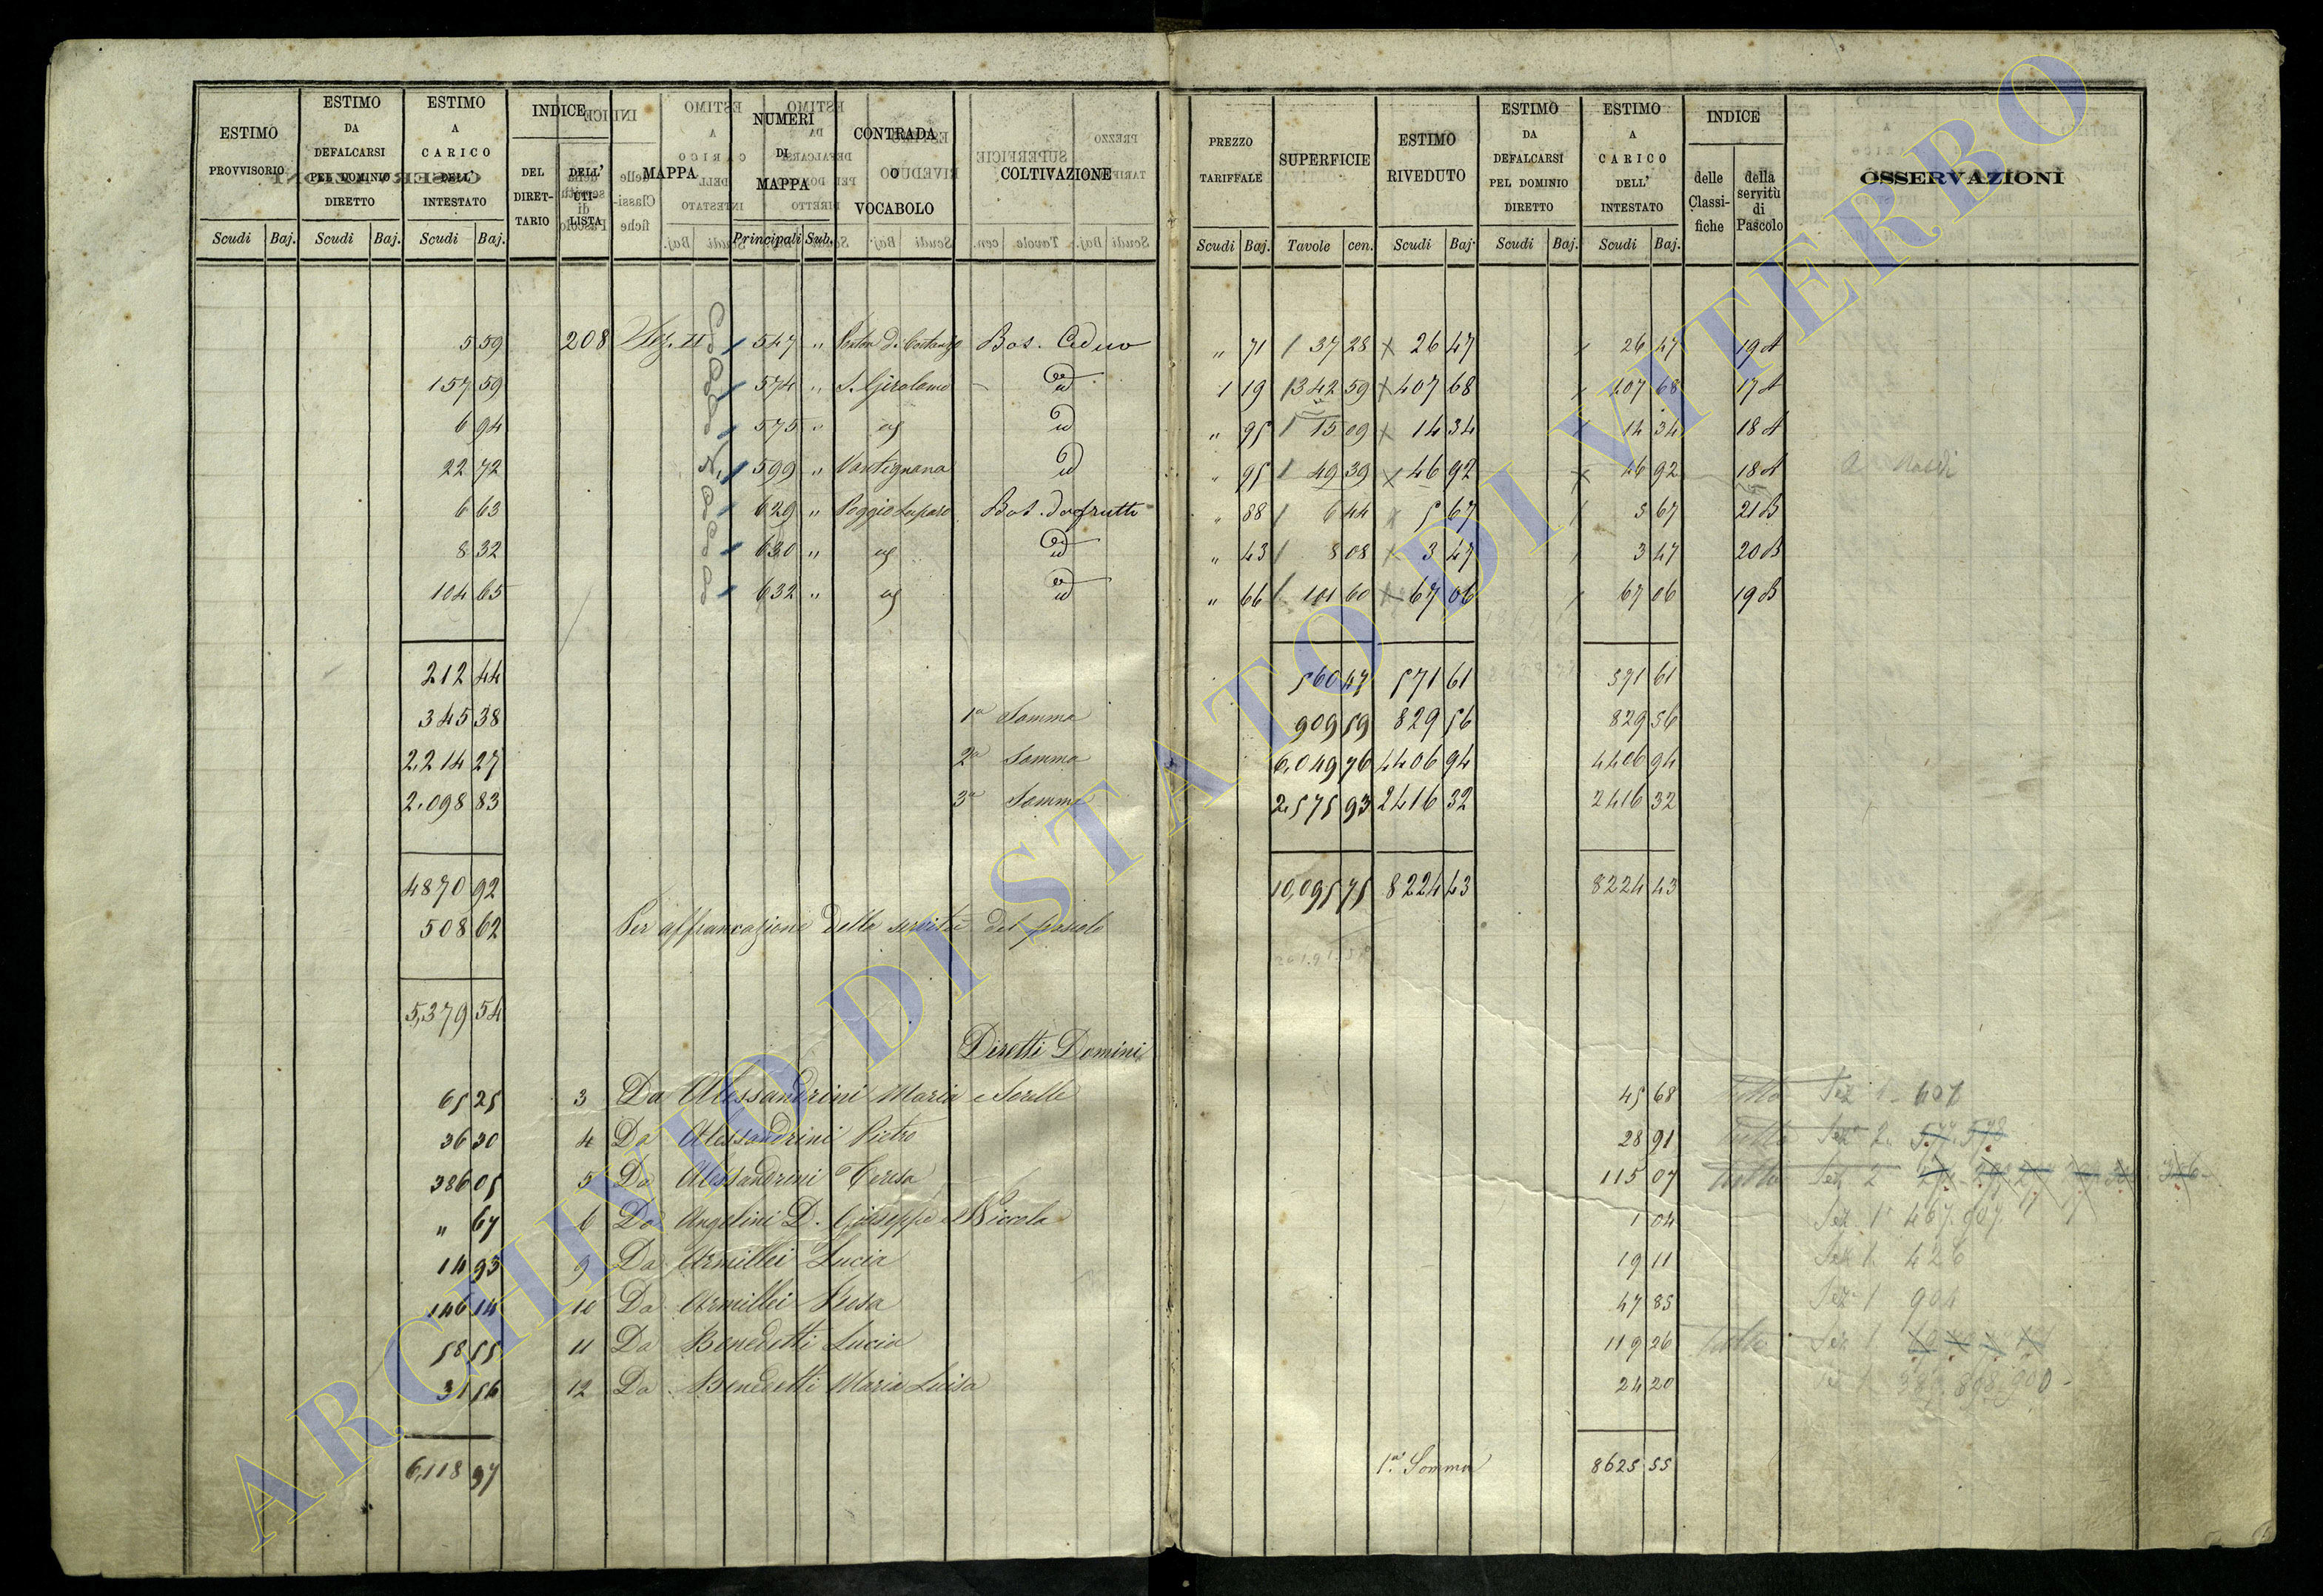 ESTIMO PROVVISORIO Scudi Baj.
ESTIMO DA DEFALCARSI PEL DOMINIO DIRETTO Scudi Baj.
ESTIMO A CARICO DELL' INTESTATO Scudi Baj.
INDICE DEL DIRET-TARIO DELL' UTI-LISTA
MAPPA
NUMERI DI MAPPA Principali Sub.
CONTRADA O VOCABOLO
COLTIVAZIONE
PREZZO TARIFFALE Scudi Baj.
SUPERFICIE Tavole cen.
ESTIMO RIVEDUTO Scudi Baj.
ESTIMO DA DEFALCARSI PEL DOMINIO DIRETTO Scudi Baj.
ESTIMO A CARICO DELL' INTESTATO Scudi Baj.
INDICE delle Classi-fiche della servitù di Pascolo
OSSERVAZIONI
5 59 208 Sez. II 547 " Bos. Ceduo " 71 37 28 26 47 26 47 19 A
157 59 574 " S. Girolamo id 1 19 342 59 407 68 407 68 17 A
6 94 575 " id " 95 15 09 14 34 14 34 18 A
22 72 599 " id " 95 49 39 46 92 46 92 18 A
6 63 629 " Bos. da frutto " 88 6 44 5 67 5 67 21 B
8 32 630 " id " 43 8 08 3 47 3 47 20 B
104 65 632 " id " 66 101 60 67 06 67 06 19 B
212 44 560 47 571 61 571 61
345 38 1a Somma 909 59 829 56 829 56
2,214 27 2a Somma 6,049 76 4406 94 4406 94
2,098 83 3a Somma 2,575 93 2416 32 2416 32
4870 92 10,095 75 8224 43 8224 43
508 62 Per affrancazione della servitù del pascolo
5,379 54
Diretti Domini
65 25 3 Da Alessandrini Maria e Sorelle 45 68 tutto Sez 1a 607
36 30 4 Da Alessandrini Pietro 28 91 tutto Sez 2a 577. 578
386 05 5 Da Alessandrini Teresa 115 07 tutto Sez 2
" 67 6 Da Angelini D. Giuseppe e Niccola 1 04 Sez. 1a 467. 907.
14 93 9 Da Armillei Lucia 19 11 Sez 1. 426
146 14 10 Da Armillei Rosa 47 85 Sez 1 904
58 55 11 Da Benedetti Lucia 119 26 tutto Sez 1.
31 56 12 Da Benedetti Maria Luisa 24 20 898. 900
6,118 97 1a Somma 8625 55
ARCHIVIO DI STATO DI VITERBO